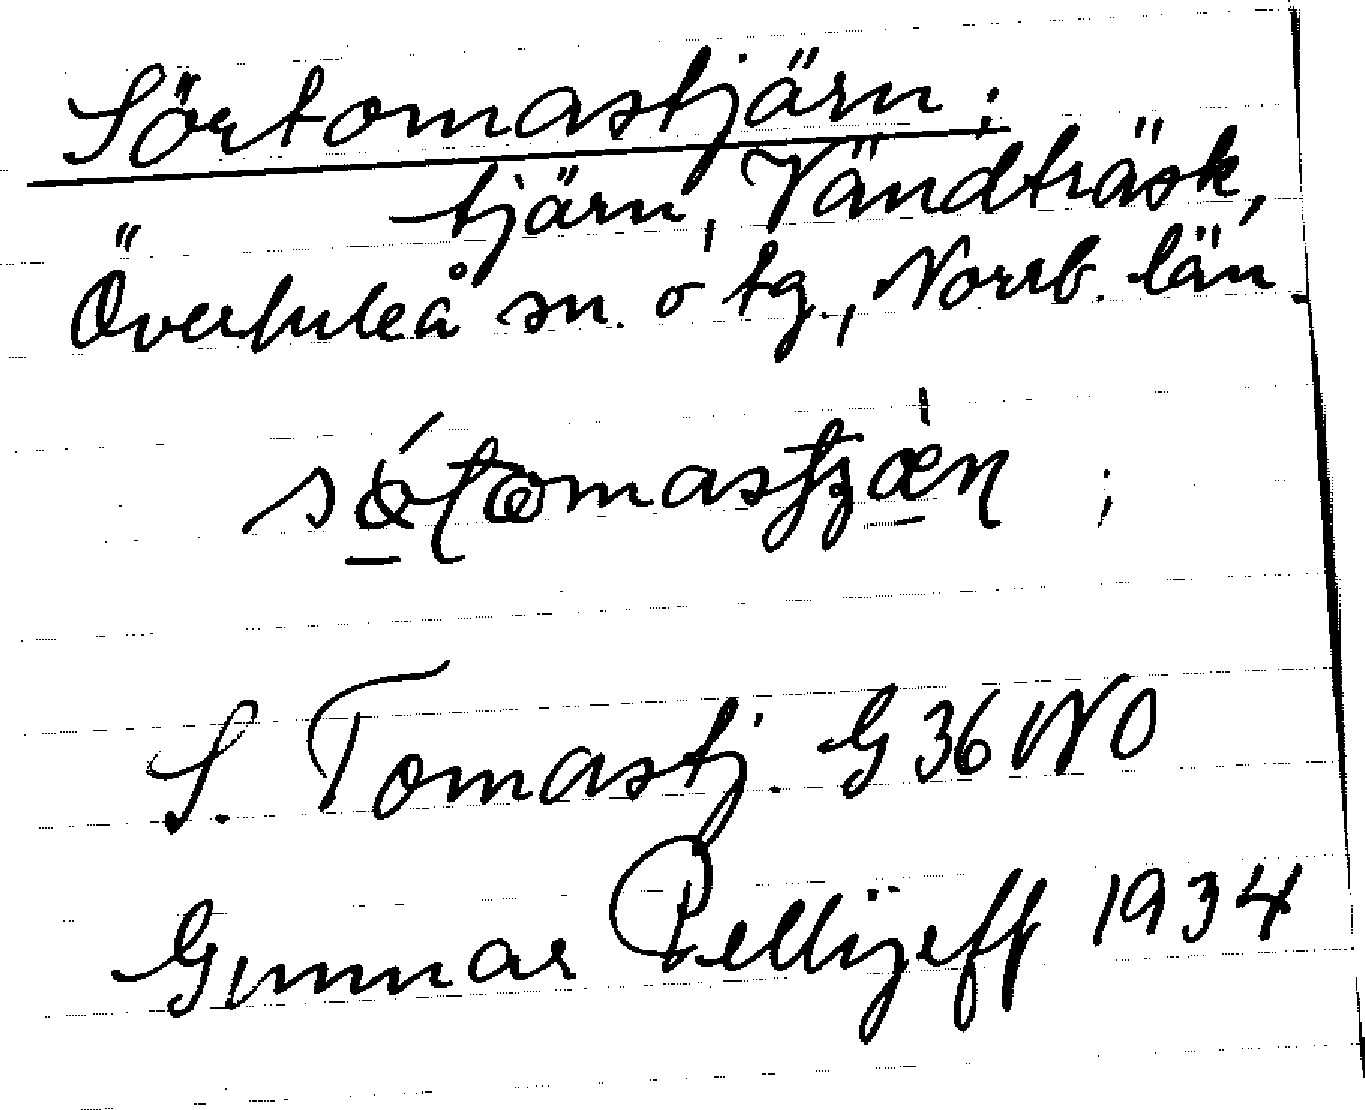 Sörtomastjärn;
tjärn, Vändträsk,
Överluleå sn. o tg., Norrb. län.
S. Tomastj. G 36 NO
Gunnar Pellijeff 1934